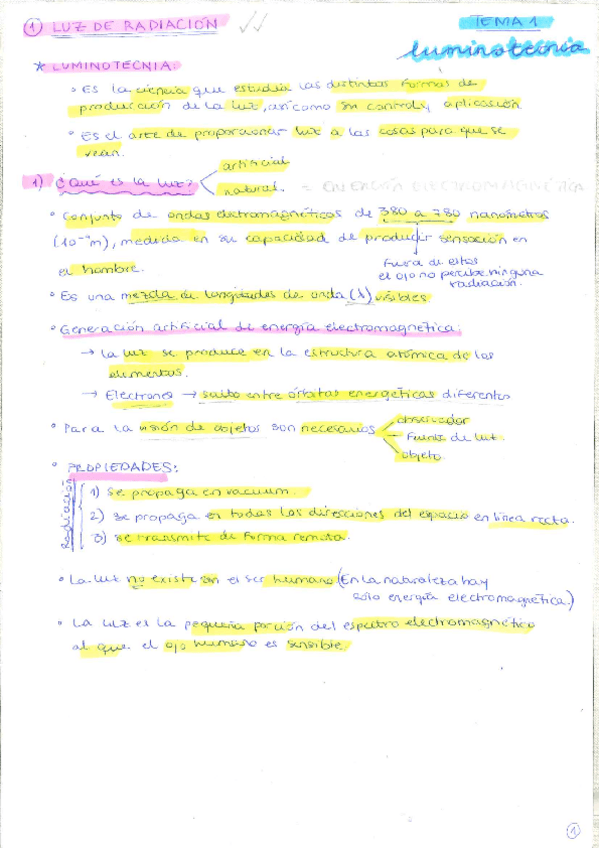 ① LUZ DE RADIACIÓN
TEMA 1
luminotecnia
* LUMINOTECNIA:
• Es la ciencia que estudia las distintas formas de
producción de la luz, así como su control y aplicación
• Es el arte de proporcionar luz a las cosas para que se
vean.
1) ¿Qué es la luz?
artificial
natural.
= ENERGÍA ELECTROMAGNÉTICA
• Conjunto de ondas electromagnéticas de 380 a 780 nanómetros
(10⁻⁹m), medida en su capacidad de producir sensación en
el hombre.
Fuera de estos
el ojo no percibe ninguna
radiación.
• Es una mezcla de longitudes de onda (λ) visibles
• Generación artificial de energía electromagnética:
→ La luz se produce en la estructura atómica de los
elementos.
→ Electrones → salto entre órbitas energéticas diferentes
• Para la visión de objetos son necesarios
observador
Fuente de luz.
objeto.
• PROPIEDADES:
Radiación
1) Se propaga en vacuum.
2) Se propaga en todas las direcciones del espacio en línea recta.
3) Se transmite de forma remota.
• La luz no existe sin el ser humano (En la naturaleza hay
sólo energía electromagnética.)
• La luz es la pequeña porción del espectro electromagnético
al que el ojo humano es sensible.
①